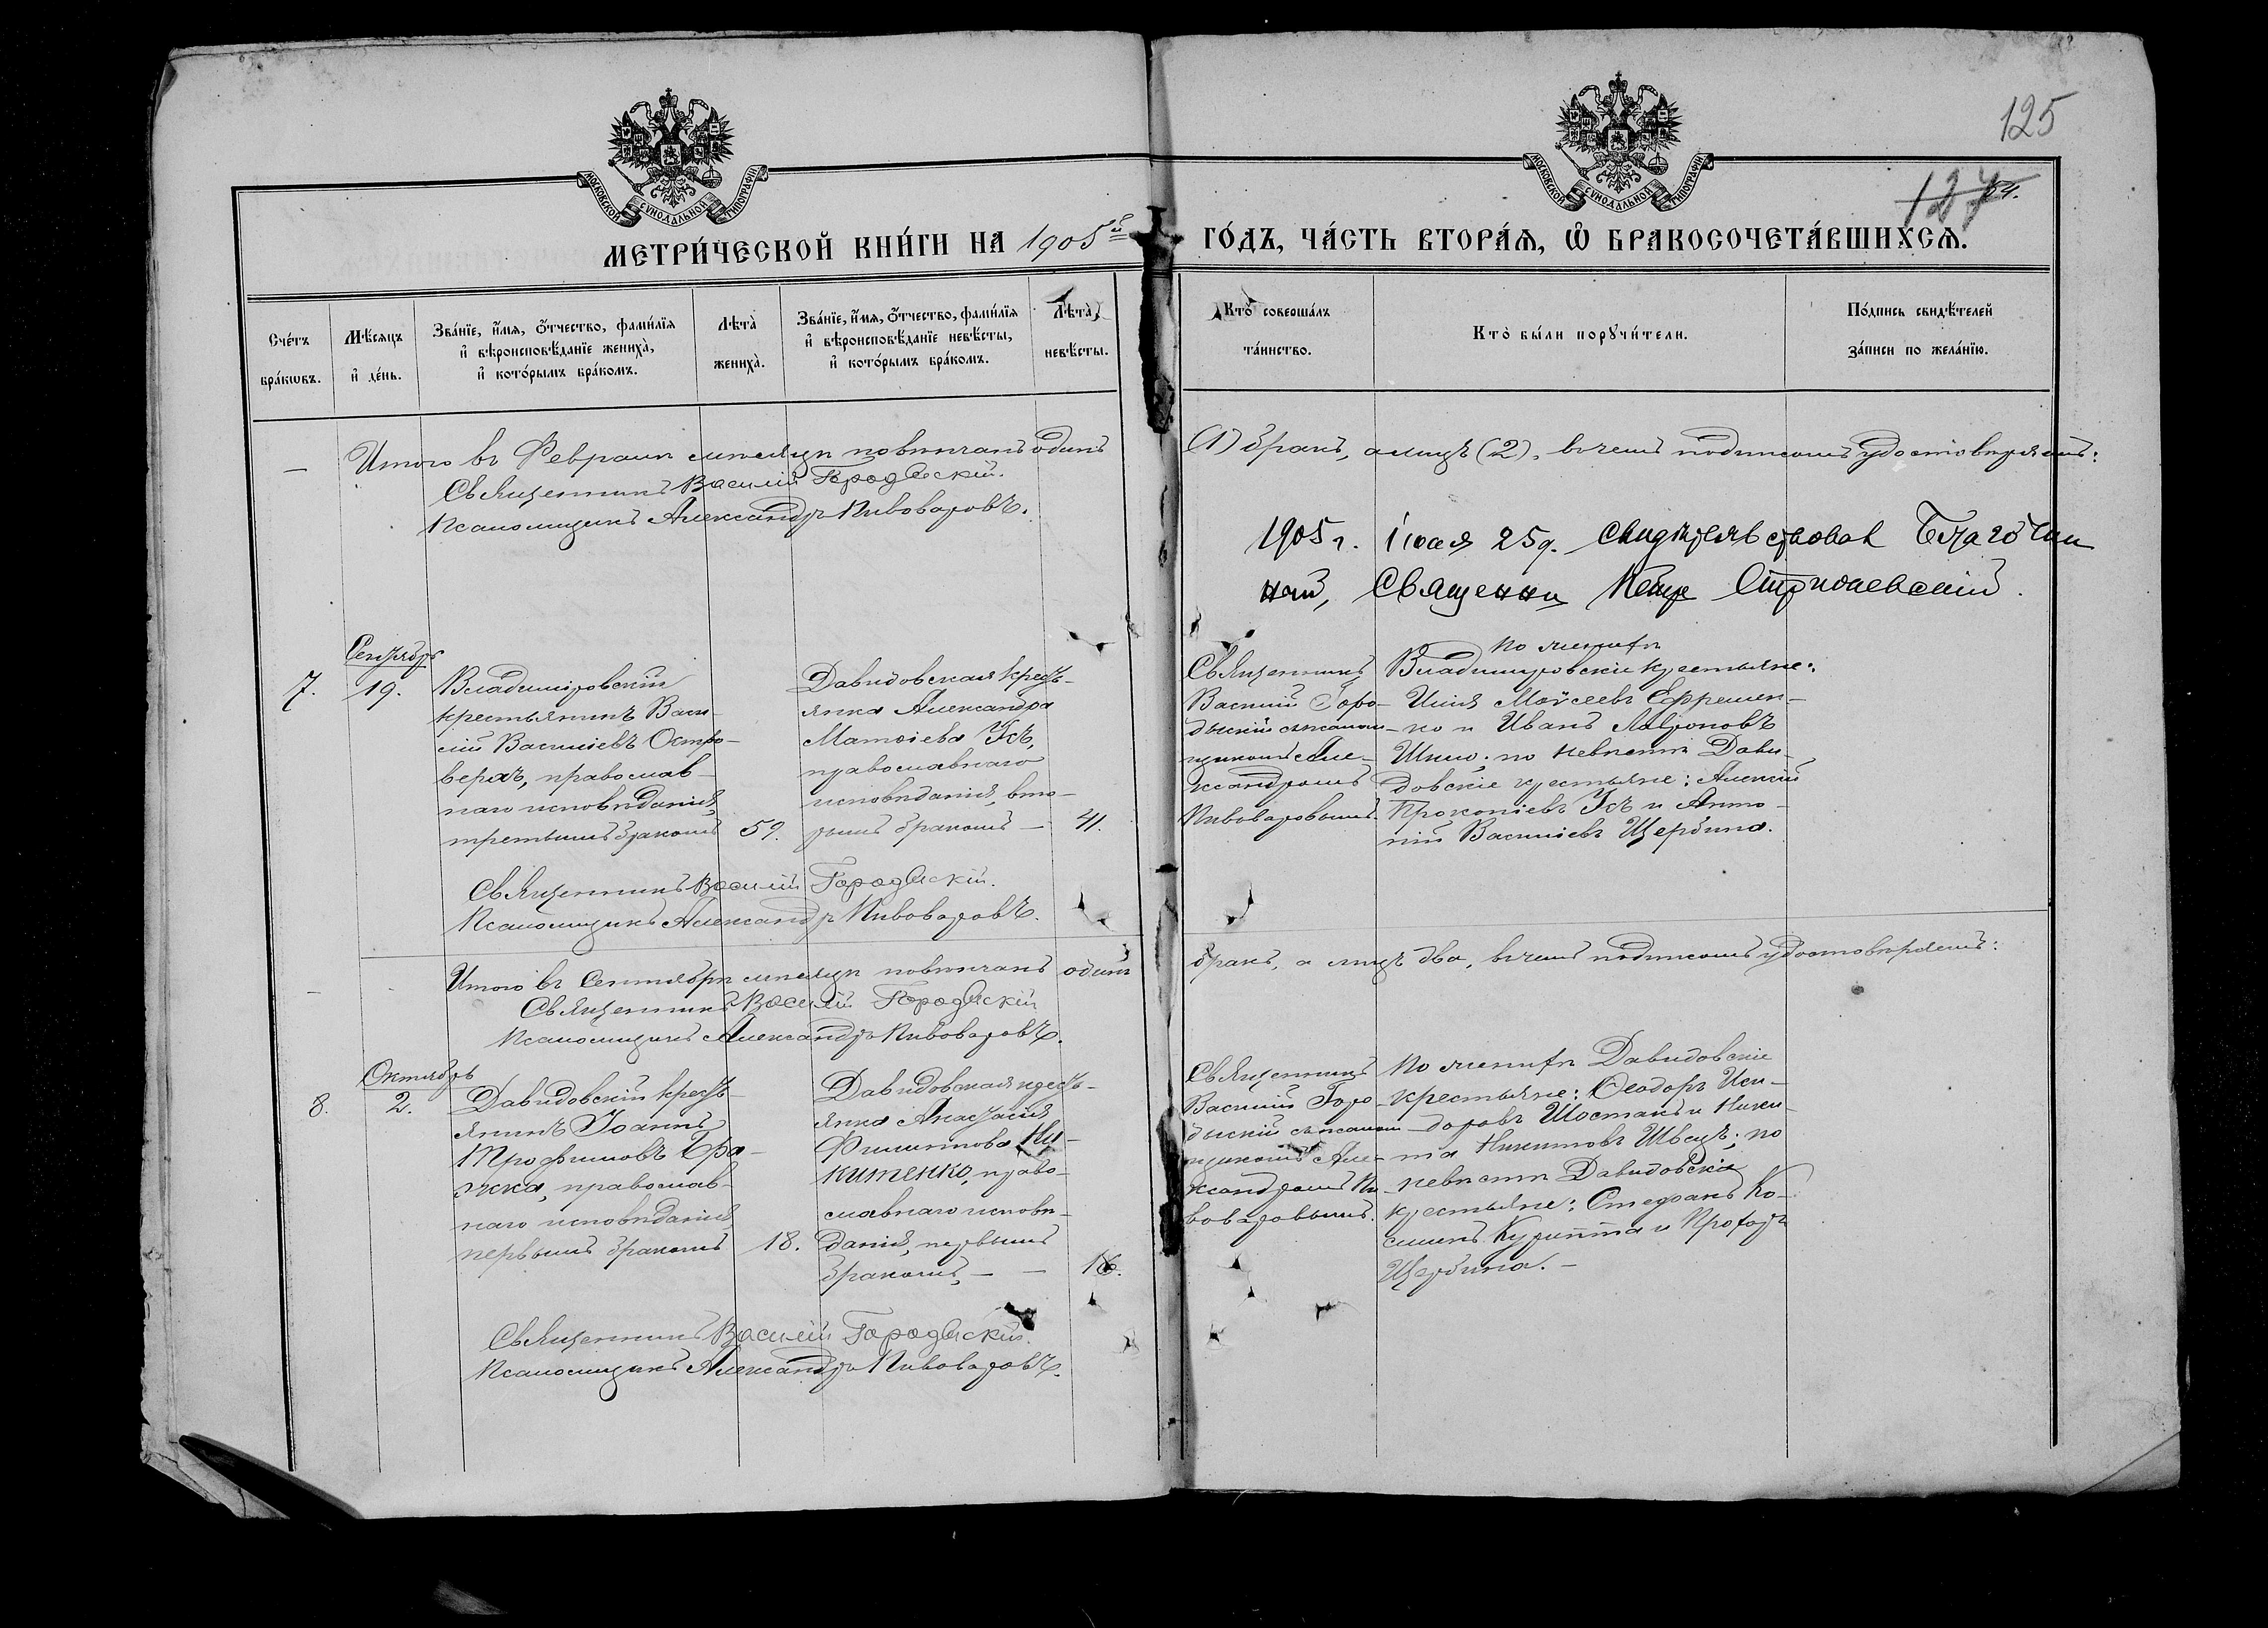 125
127
64.
МОСКОВСКОЙ СѴНОДАЛЬНОЙ ТИПОГРАФІИ
МОСКОВСКОЙ СѴНОДАЛЬНОЙ ТИПОГРАФІИ
МЕТРИ́ЧЕСКОЙ КНИ́ГИ НА 1905й ГО́ДЪ, ЧА́СТЬ ВТОРА́Ѧ, Ѽ БРАКОСОЧЕТА́ВШИХСѦ.
Сче́тъ бра́кѡвъ.
Мѣ́сяцъ и҆ де́нь.
Зва́нїе, и҆́мя, ѻ҆́тчество, фами́лїя
и҆ вѣроисповѣ́данїе жениха̀,
и҆ кото́рымъ бра́комъ.
Лѣта̀ жениха̀.
Зва́нїе, и҆́мя, ѻ҆́тчество, фами́лїя
и҆ вѣроисповѣ́данїе невѣ́сты,
и҆ кото́рымъ бра́комъ.
Лѣта̀ невѣ́сты.
Кто̀ соверша́лъ
та́инство.
Кто̀ бы́ли порꙋчи́тели.
По́дпись свидѣ́телей
за́писи по жела́нїю.
— Итого въ Февралѣ мѣсяцѣ повѣнчанъ одинъ (1) бракъ, а лицъ (2), въ чемъ подписомъ удостовѣряемъ:
Священникъ Василій Городыскій.
Псаломщикъ Александръ Пивоваровъ.
1905 г. Іюля 25 д. Свидѣтельствовал Благочин
ный, Священни Петр
Сентябрь
7. 19.
Владиміровскій
крестьянинъ Васи-
лій Василіевъ Остро-
верхъ, православ-
наго исповѣданія,
третьимъ бракомъ
59.
Давидовская крест-
янка Александра
Матѳіева Усъ,
православнаго
исповѣданія, вто-
рымъ бракомъ —
41.
Священникъ
Василій Горо-
дыскій съ псалом-
щикомъ Але-
ксандромъ
Пивоваровымъ.
По женихѣ
Владимировскіе крестьяне:
Илія Моѵсеевъ Ефремен-
ко и Иванъ
Шило; по невѣстѣ Дави-
довскіе крестьяне: Алексій
Прокопіевъ Усъ и Анто-
ній Василіевъ Щербина.
Священникъ Василій Городыскій.
Псаломщикъ Александръ Пивоваровъ.
— Итого въ Сентябрѣ мѣсяцѣ повѣнчанъ одинъ бракъ, а лицъ два, въ чемъ подписомъ удостовѣряемъ:
Священникъ Василій Городыскій
Псаломщикъ Александръ Пивоваровъ.
Октябрь
8. 2.
Давидовскій крест-
янинъ Іоаннъ
Трофимовъ Бра-
жка, православ-
наго исповѣданія
первымъ бракомъ
18.
Давидовская крест-
янка Анастасія
Филиппова Ни-
китенко, право-
славнаго исповѣ-
данія, первымъ
бракомъ, — —
16.
Священникъ
Василій Горо-
дыскій съ псалом-
щикомъ Але-
ксандромъ Пи-
воваровымъ.
По женихѣ Давидовскіе
крестьяне: Ѳеодоръ Иси-
доровъ Шостакъ и Ники-
та Никитовъ Швецъ; по
невѣстѣ Давидовскіе
крестьяне: Стефанъ Ко-
сминъ Курипта и Прохоръ
Щербина. —
Священникъ Василій Городыскій.
Псаломщикъ Александръ Пивоваровъ.